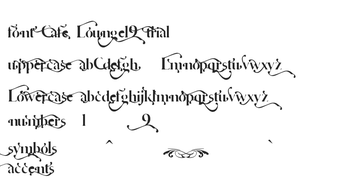 font Cafe, Lounge19 trial
uppercase abCdefgh, lmnopqrstuvwxyz
Lowercase abcdefghijklmnopqrstuvwxyz
numbers 1 9
symbols ^ `
accents